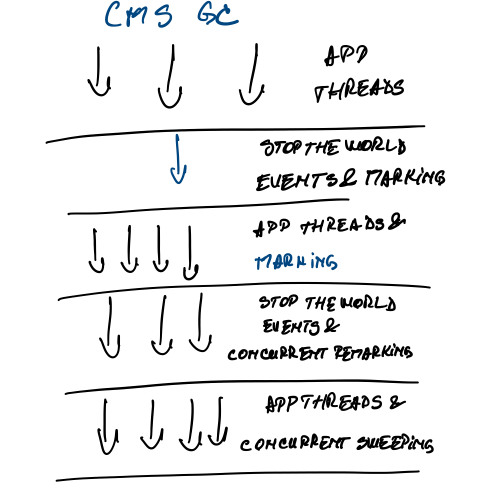 CMS GC
APP
THREADS
STOP THE WORLD
EVENTS & MARKING
APP THREADS &
MARKING
STOP THE WORLD
EVENTS &
CONCURRENT REMARKING
APP THREADS &
CONCURRENT SWEEPING